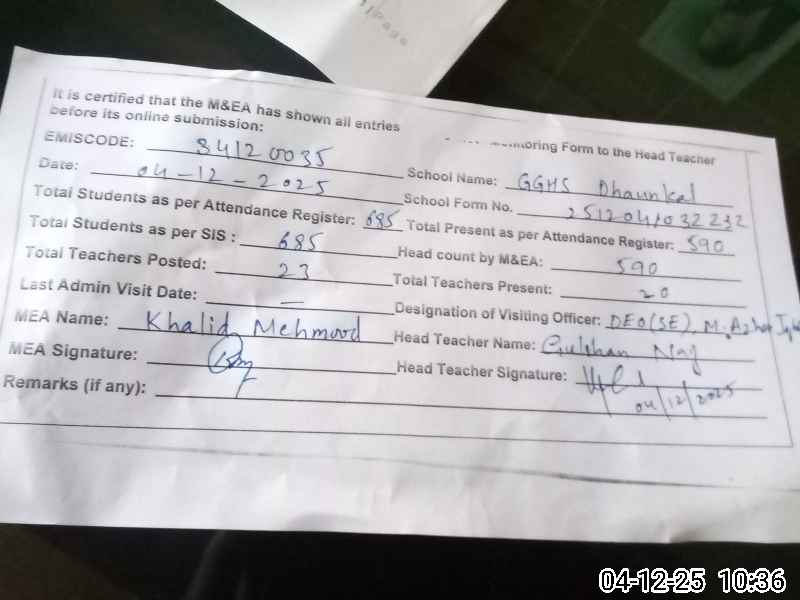 Page
It is certified that the M&EA has shown all entries
before its online submission:
Form to the Head Teacher
EMISCODE: 34120035
School Name: GGHS Dhaunkal
Date: 04-12-2025
School Form No. 2512041032232
Total Students as per Attendance Register: 685
Total Present as per Attendance Register: 590
Total Students as per SIS : 685
Head count by M&EA: 590
Total Teachers Posted: 23
Total Teachers Present: 20
Last Admin Visit Date: —
Designation of Visiting Officer: DEO(SE), M. Azhar
MEA Name: Khalid Mehmood
Head Teacher Name: Gulshan Naz
MEA Signature:
Head Teacher Signature:
04/12/2025
Remarks (if any):
04-12-25 10:36